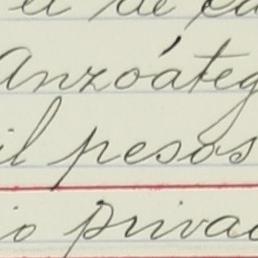 el de ca
Anzoáteg
il pesos
io privad